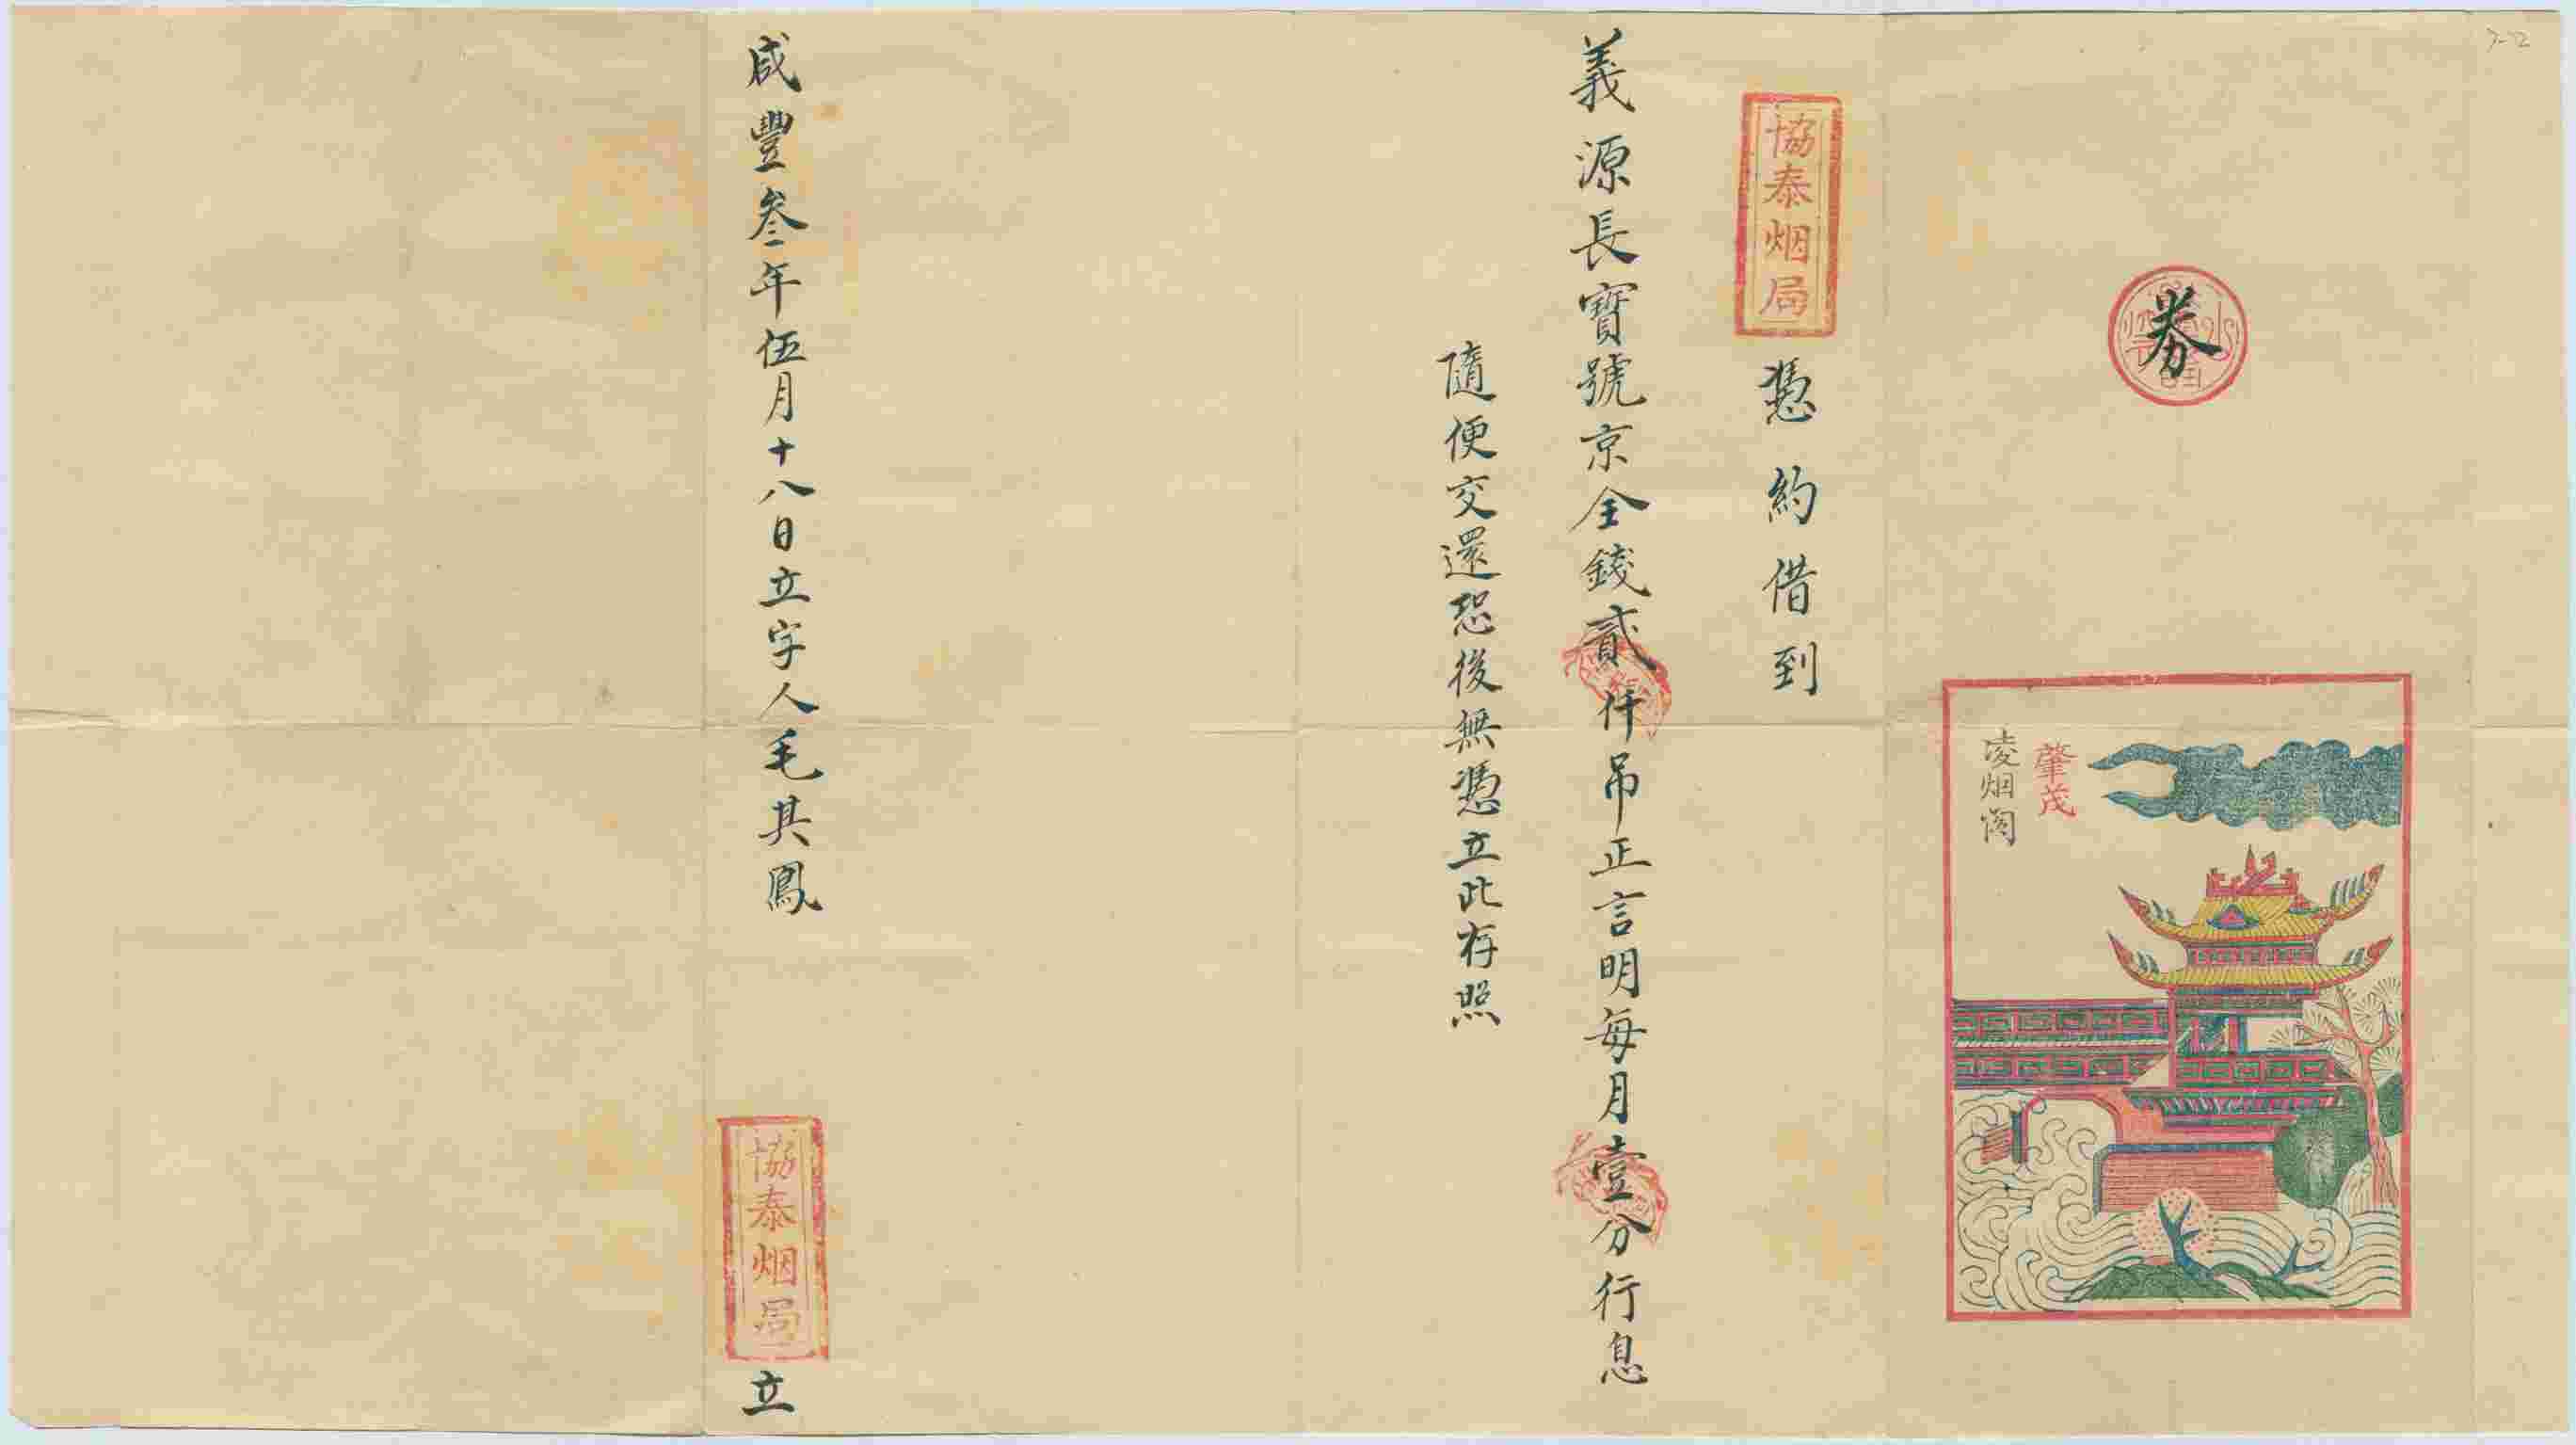 券
肇茂
凌烟阁
協泰烟局
憑約借到
義源長寶號京全錢貳仟吊正言明每月壹分行息
隨便交還恐後無憑立此存照
咸豐叁年伍月十八日立字人毛其鳳
協泰烟局
立